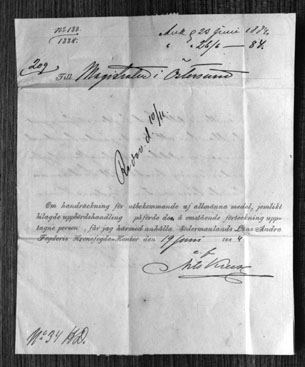 No 188.
1884.
Ank. 23 Juni 1884
" " 26/6 — 84.
209
Till Magistraten i Östersund
Redov. d. 10/11
Om handräckning för utbekommande af allmänna medel, jemlikt
bilagde uppbördshandling påförde den å omstående förteckning upp-
tagne person, får jag härmed anhålla. Södermanlands Läns Andra
Fögderis Kronofogde-Kontor den 19 Juni 4
Nils
No 34 HD.